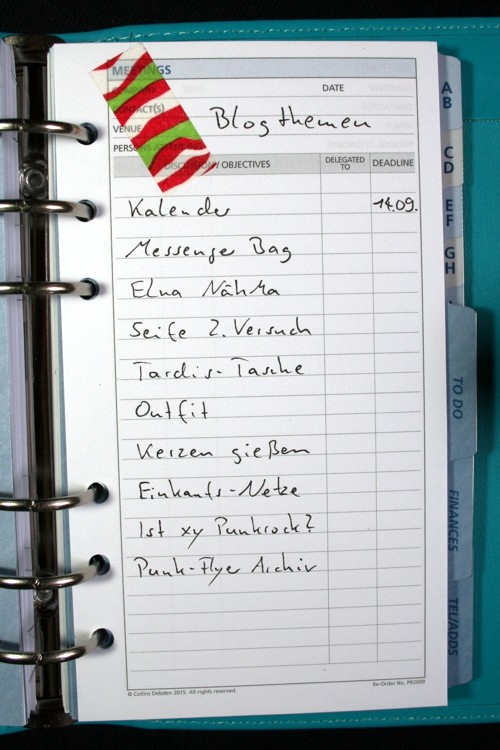 MEETINGS
DATE
CONTACT(S)
VENUE
Blogthemen
PERSONS
DISCUSSION/OBJECTIVES
DELEGATED TO
DEADLINE
Kalender
14.09.
Messenger Bag
Elna NähMa
Seife 2. Versuch
Tardis-Tasche
Outfit
Kerzen gießen
Einkaufs-Netze
Ist xy Punkrock?
Punk-Flyer Archiv
© Collins Debden 2015. All rights reserved.
Re-Order No. PR2009
A
B
C
D
E
F
G
H
TO DO
FINANCES
TEL/ADDS